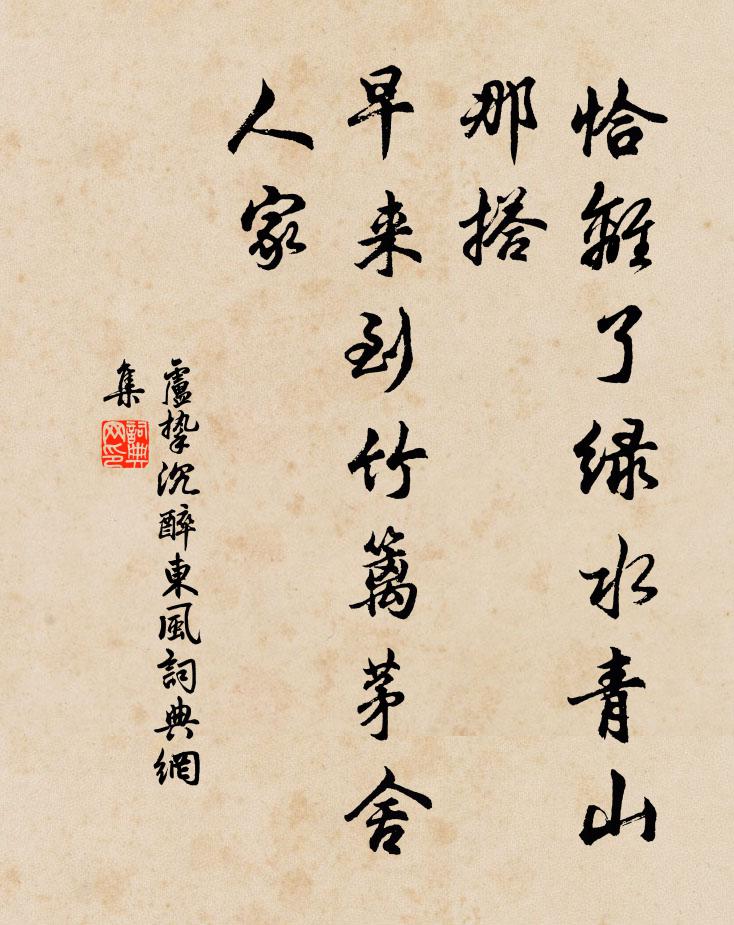 恰離了绿水青山
那搭
早来到竹籬茅舍
人家
盧摯沉醉東風詞典網
集
詞典
网印